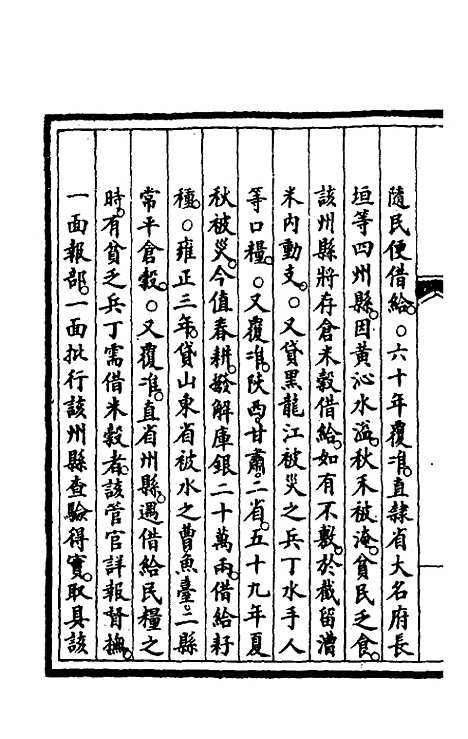 隨民便借給。○六十年覆准。直隸省大名府長
垣等四州縣。因黃沁水溢。秋禾被淹。貧民乏食。
該州縣將存倉米穀借給。如有不敷。於截留漕
米內動支。○又貸黑龍江被災之兵丁水手人
等口糧。○又覆准。陝西甘肅二省。五十九年夏
秋被災。今值春耕。撥解庫銀二十萬兩。借給耔
種。○雍正三年。貸山東省被水之曹魚臺。二縣
常平倉穀。○又覆准。直省州縣。遇借給民糧之
時。有貧乏兵丁需借米穀者。該管官詳報督撫。
一面報部。一面批行該州縣查驗得實。取具該